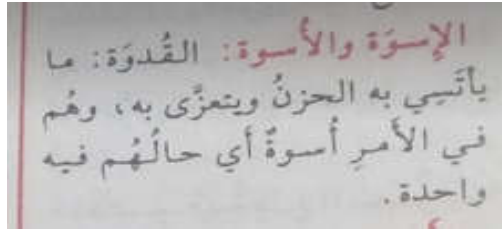 الإسوَة والأُسوة: القُدوَة: ما
يأتَسِي به الحزنُ ويتعزَّى به، وهُم
في الأَمرِ أُسوةٌ أي حالُهُم فيه
واحدة.